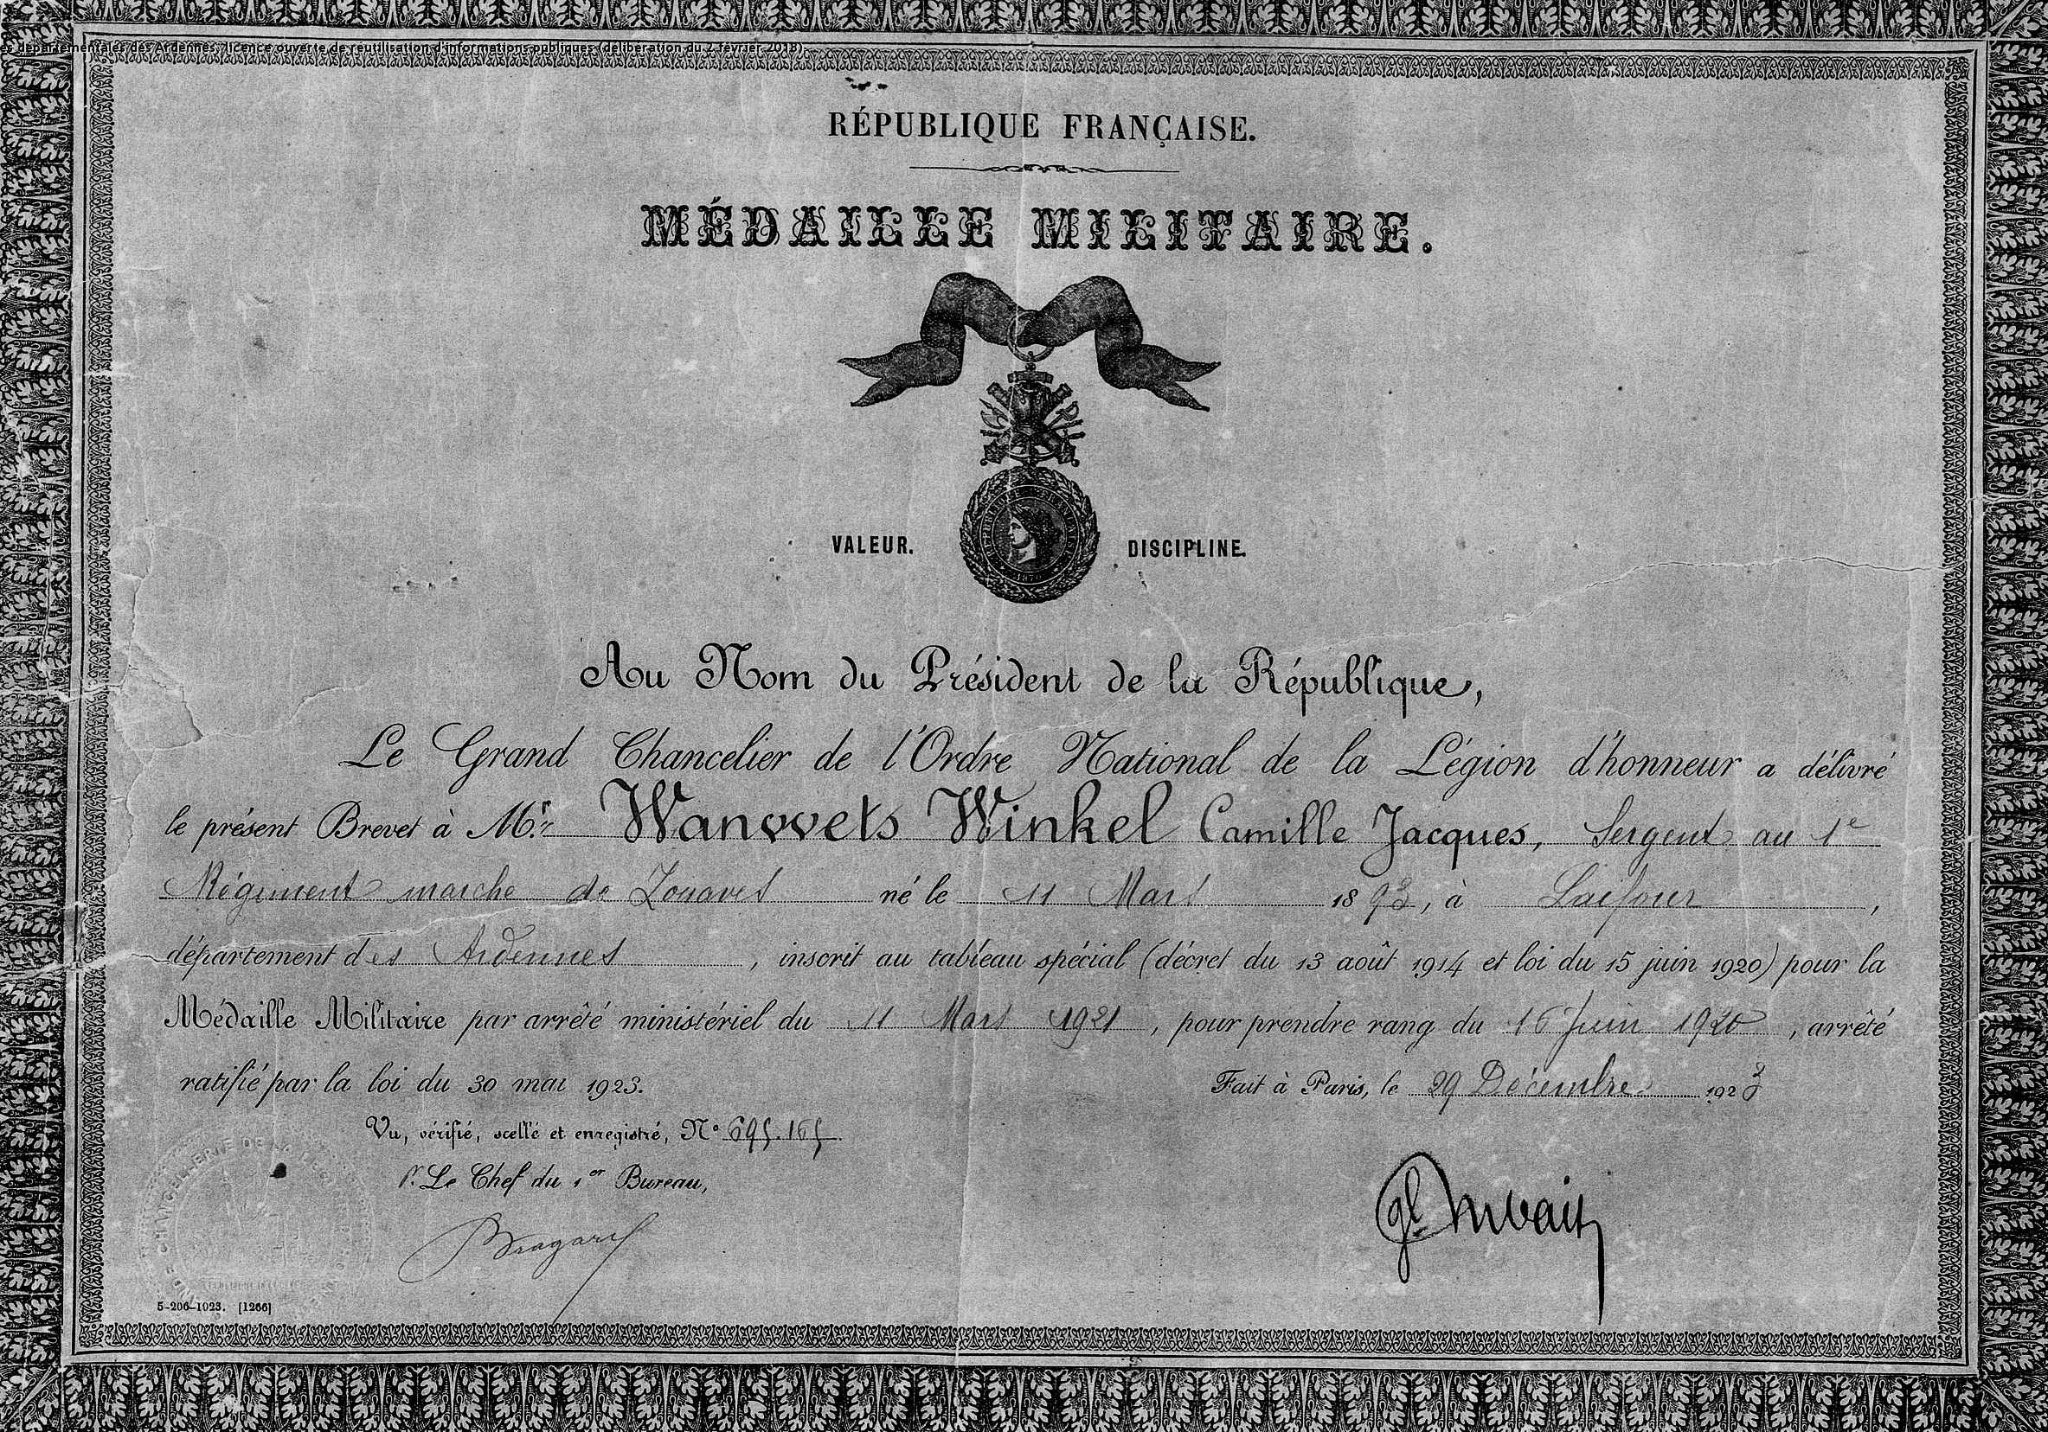 es départementales des Ardennes, licence ouverte de réutilisation d'informations publiques (délibération du 2 février 2018)
RÉPUBLIQUE FRANÇAISE.
MÉDAILLE MILITAIRE.
VALEUR. DISCIPLINE.
1870
Au Nom du Président de la République,
Le Grand Chancelier de l'Ordre National de la Légion d'honneur a délivré
le présent Brevet à Mr Wanvvets Winkel Camille Jacques, Sergent au 1e
Régiment marche de Zouaves né le 11 Mars 1893, à Laifour,
département des Ardennes, inscrit au tableau spécial (décret du 13 août 1914 et loi du 15 juin 1920) pour la
Médaille Militaire par arrêté ministériel du 11 Mars 1921, pour prendre rang du 16 Juin 1920, arrêté
ratifié par la loi du 30 mai 1923. Fait à Paris, le 29 Décembre 1923
Vu, vérifié, scellé et enregistré, N° 695.165
Pr Le Chef du 1er Bureau,
5-206-1023. [1266]